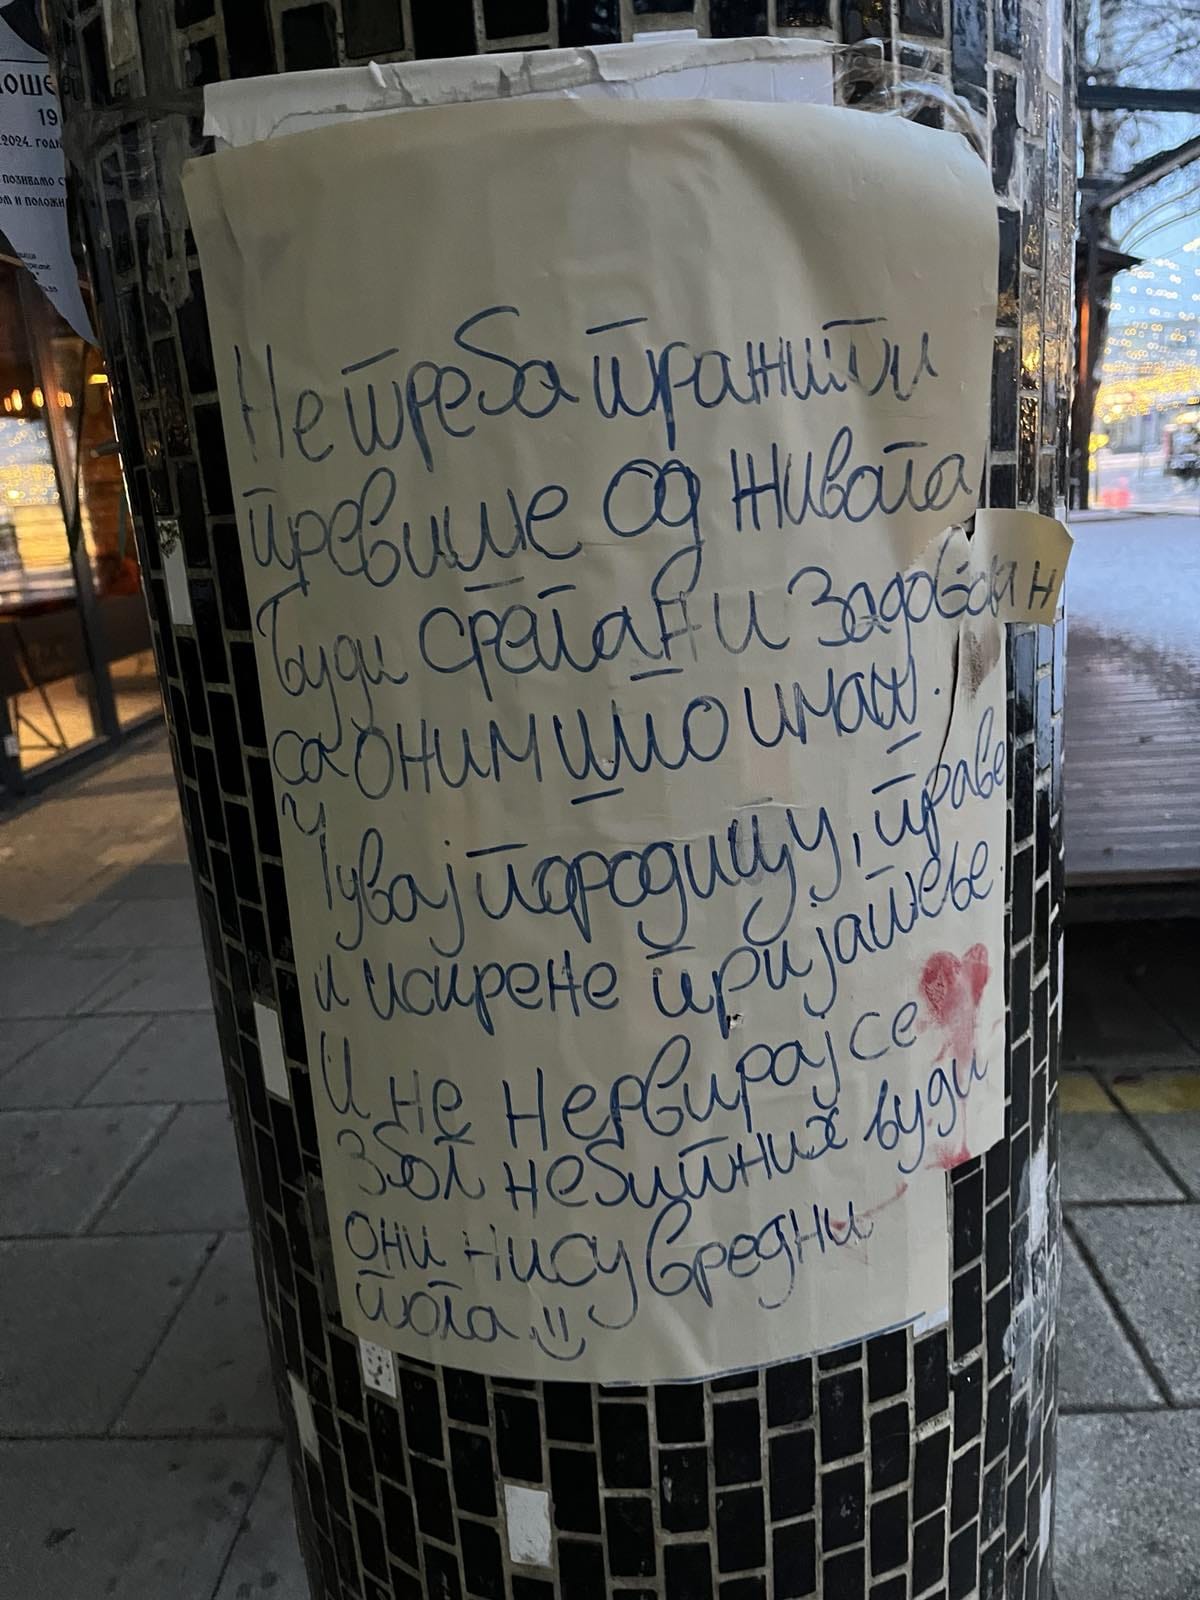 ОШЕ
19
2024. ГОД
ПОЗИВАМО С
ОМ И ПОЛОЖ
Не треба тражити
превише од живота
Буди сретан и задовољан
са оним што имаш.
Чувај породицу, праве
и искрене пријатеље.
И не нервирај се
због небитних људи
они нису вредни
тога